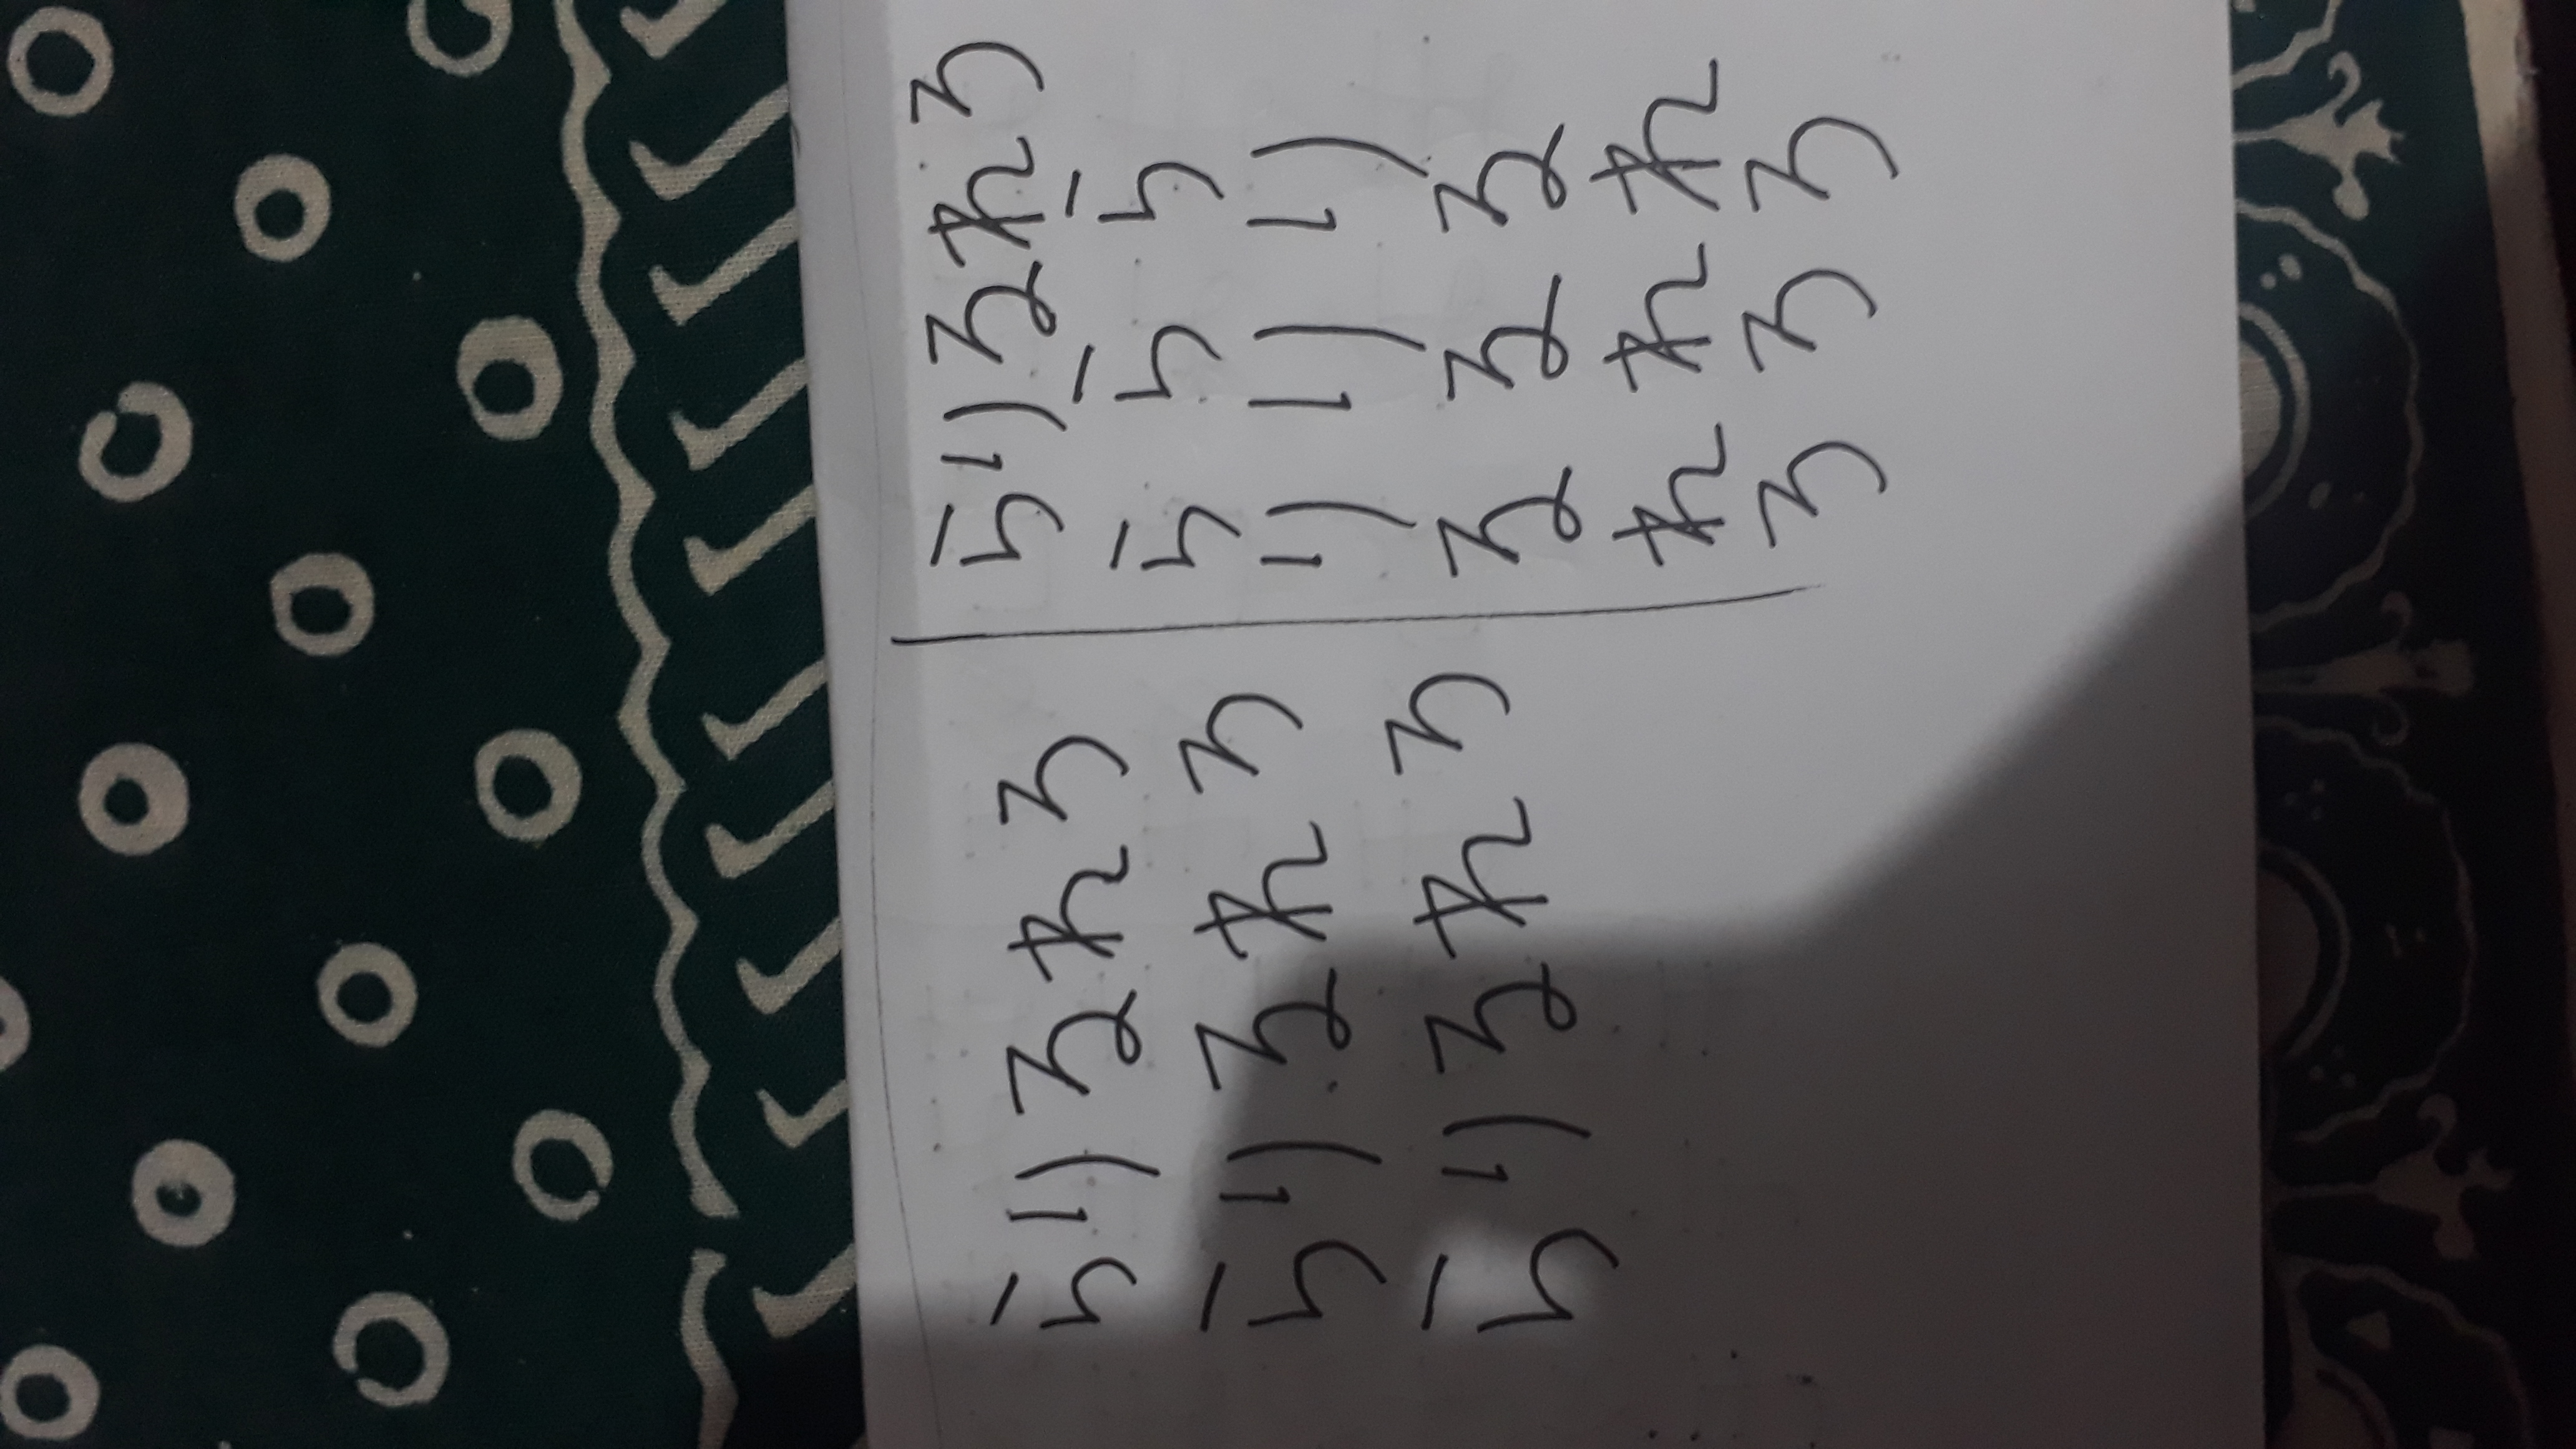 らりるれろ
らりるれろ
らりるれろ
らりるれろ
ら ら ら
り り り
る る る
れ れ れ
ろ ろ ろ